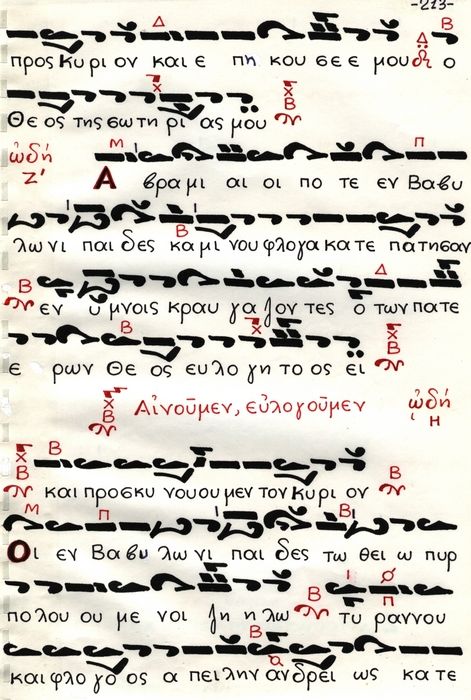 -213-
Δ Β
προς Κυ ρι ον και ε πη κου σε ε μου δι ο
Θε ος της σω τη ρι ας μου Β
Μ Π
ᾠδή Ζ' Α βρα μι αι οι πο τε εν Βαβυ
Β
λω νι παι δες κα μι νου φλογα κα τε πατησαν
Β Δ
εν υ μνοις κραυ γα ζον τες ο των πατε
Β
ε ρων Θε ος ευ λο γη το ος ει Β
Β Αἰνοῦμεν, εὐλογοῦμεν ᾠδή Η
Β
Β και προσκυ νου ου μεν τον Κυρι ον Β
Μ Π Β
Οι εν Βαβυ λω νι παι δες τω θει ω πυρ
πο λου ου με νοι ζη λω Β τυ ραννου
Π
Β
και φλο γο ος α πει λην ανδρει ως κα τε